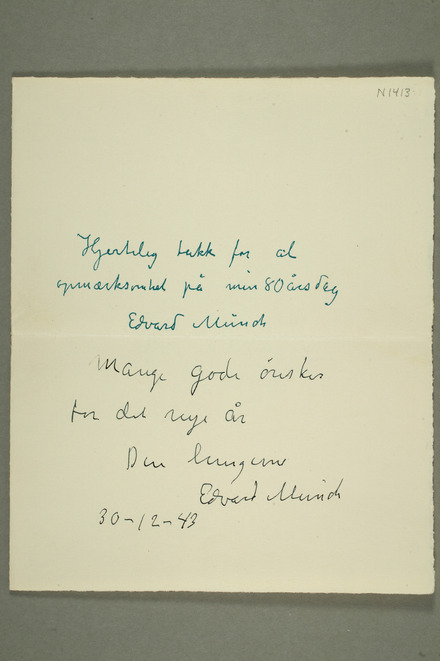 N1413
Hjertelig takk for al
opmærksomhet på min 80 årsdag
Edvard Munch
Mange gode ønsker
for det nye år
Din hengivne
Edvard Munch
30-12-43